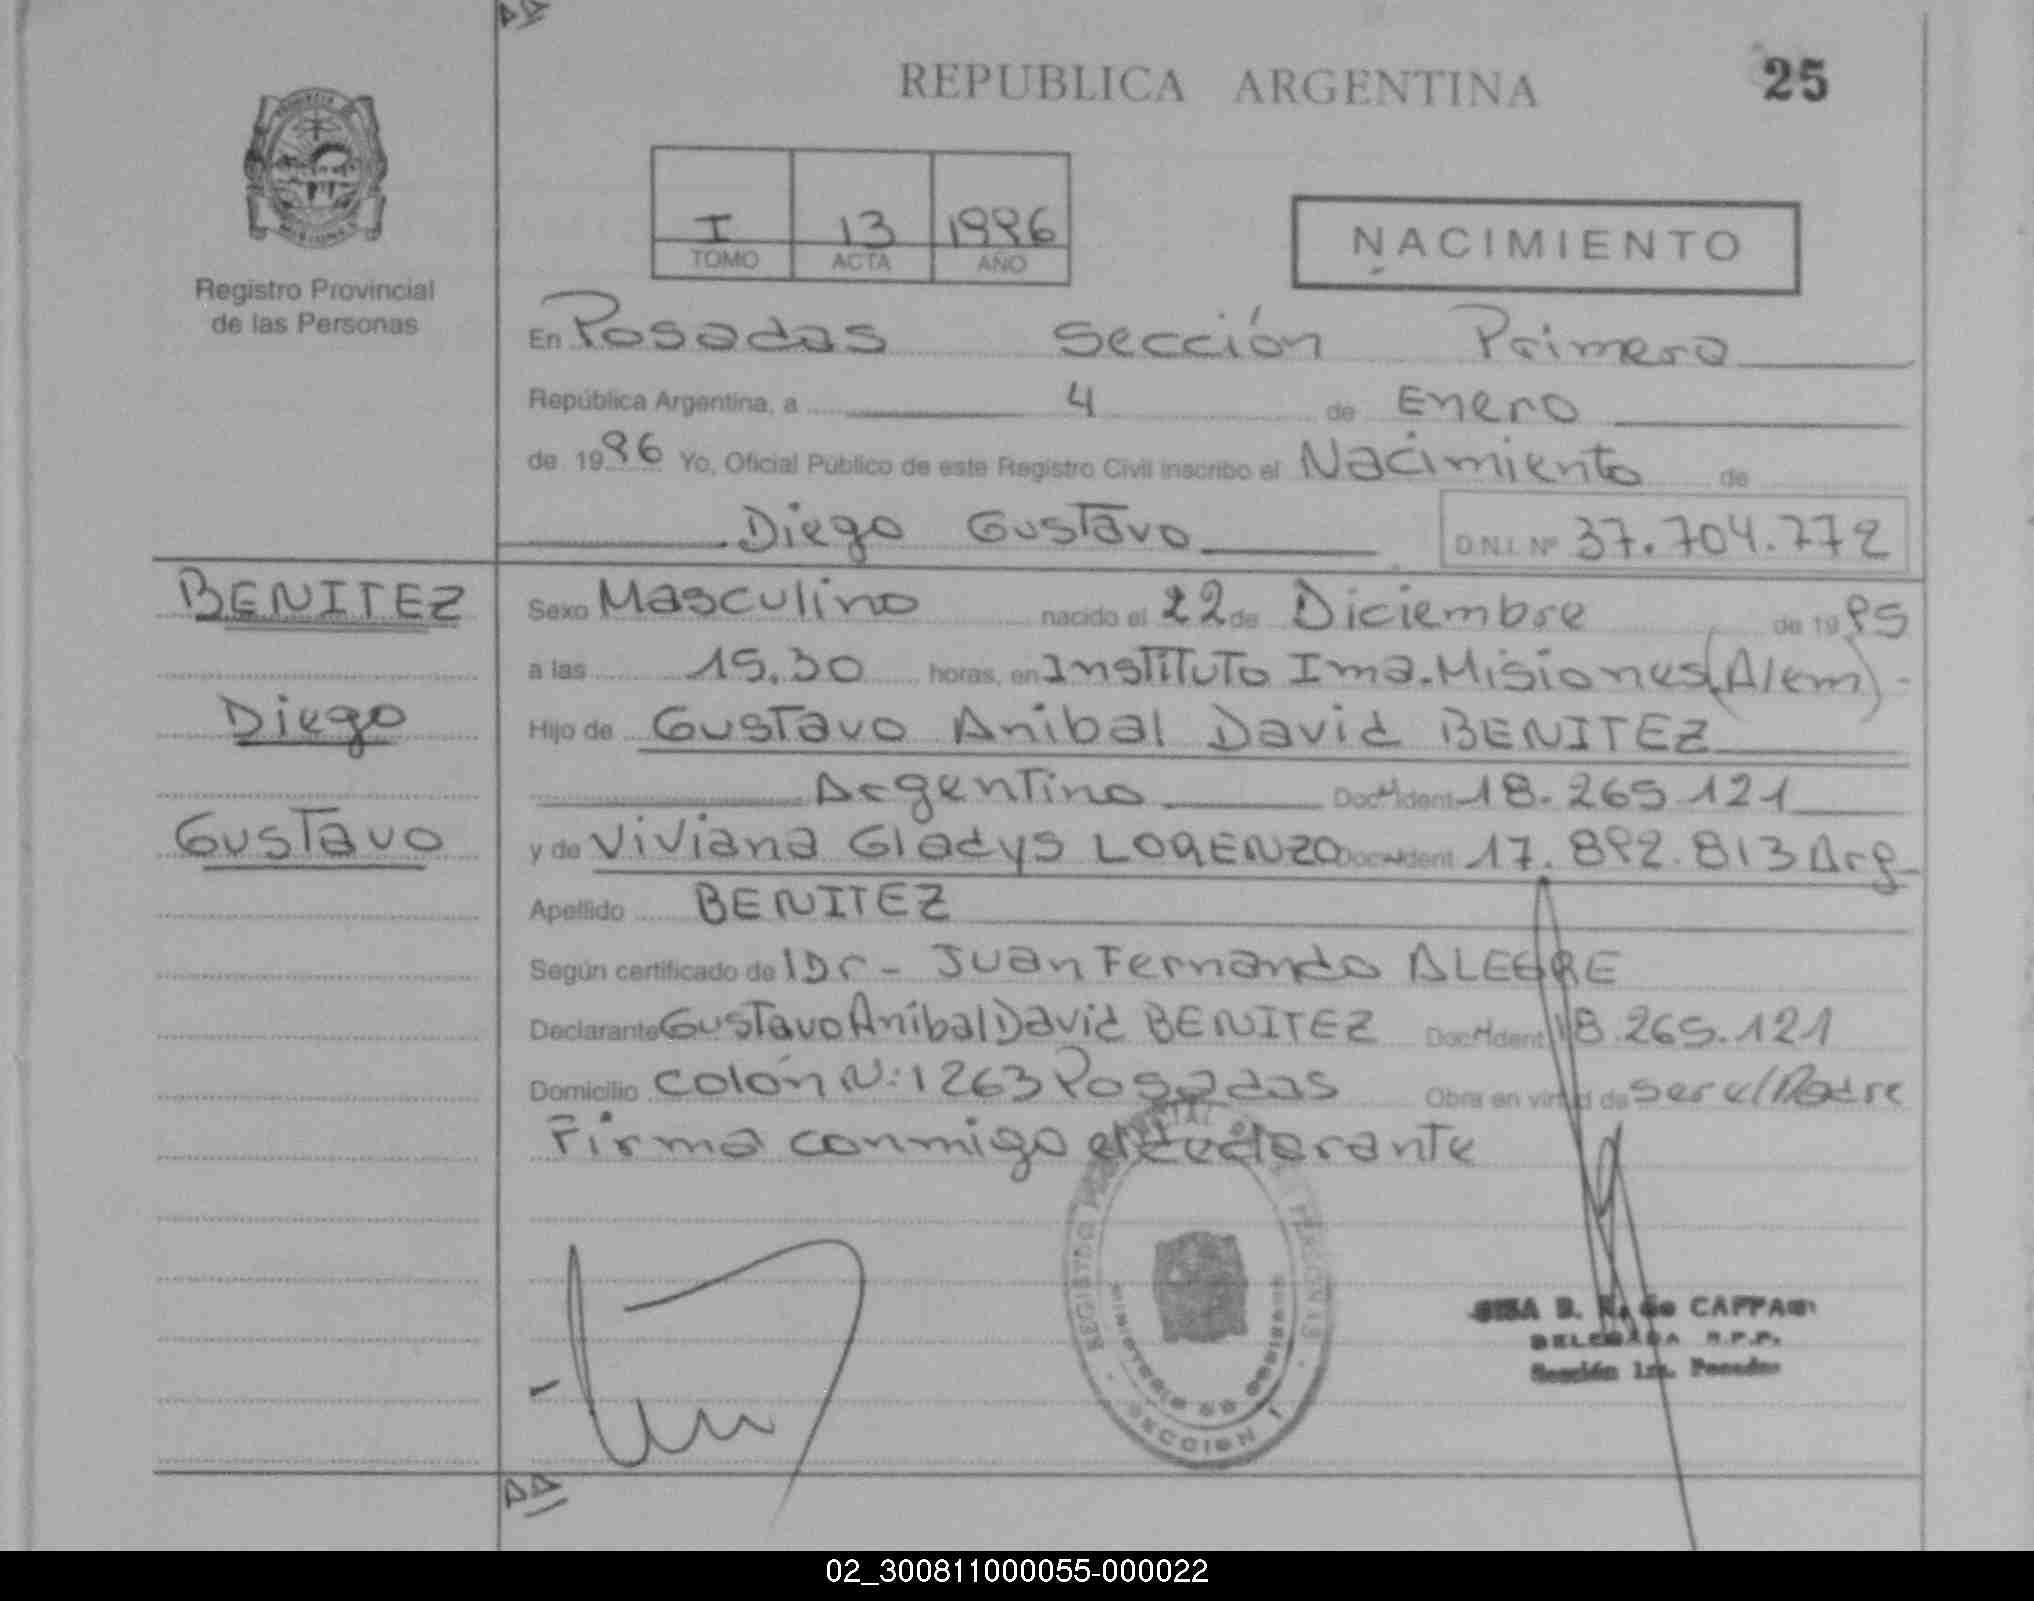 REPUBLICA ARGENTINA
25
Registro Provincial
de las Personas
I 13 1996
TOMO ACTA AÑO
NACIMIENTO
En Posadas Sección Primera
República Argentina, a 4 de Enero
de 1996 Yo, Oficial Público de este Registro Civil inscribo el Nacimiento de
Diego Gustavo D.N.I. Nº 37.704.772
BENITEZ
Diego
Gustavo
Sexo Masculino nacido el 22 de Diciembre de 1995
a las 15,30 horas, en Instituto Ima. Misiones (Alem)-
Hijo de Gustavo Anibal David BENITEZ
Argentino Doc. Ident. 18.265.121
y de Viviana Gladys LORENZO Doc. Ident. 17.892.813 Arg-
Apellido BENITEZ
Según certificado de Dr- Juan Fernando ALEGRE
Declarante Gustavo Aníbal David BENITEZ Doc. Ident. 18.265.121
Domicilio Colón N: 1263 Posadas Obra en virtud de ser el Padre
Firma conmigo el declarante
REGISTRO
MINISTERIO DE GOBIERNO
SECCION 1
DELEGADA R.P.P.
Sección 1ra. Posadas
02_300811000055-000022